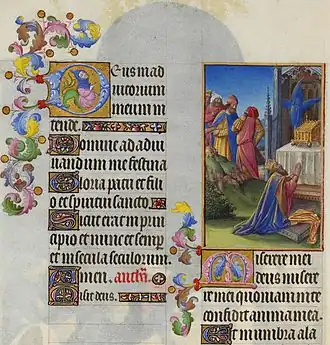 Deus in ad
iutorium
meum in
tende.
Domine ad adiu
uandum me festina
Gloria patri et fili
o et spiritui sancto.
Sicut erat in prin
cipio et nunc et semper
et in secula seculorum.
Amen. anth.
Misit deus.
Miserere mei
deus misere
re mei quoniam in te
confidit anima mea.
Et in umbra ala